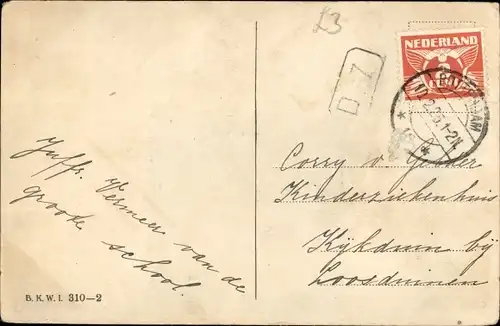 £3
NEDERLAND
D Z
Juffr. Vermeer van de
groote school.
Corry v.
Kinderziekenhuis
Kijkduin bij
Loosduinen
B. K. W. I. 310—2